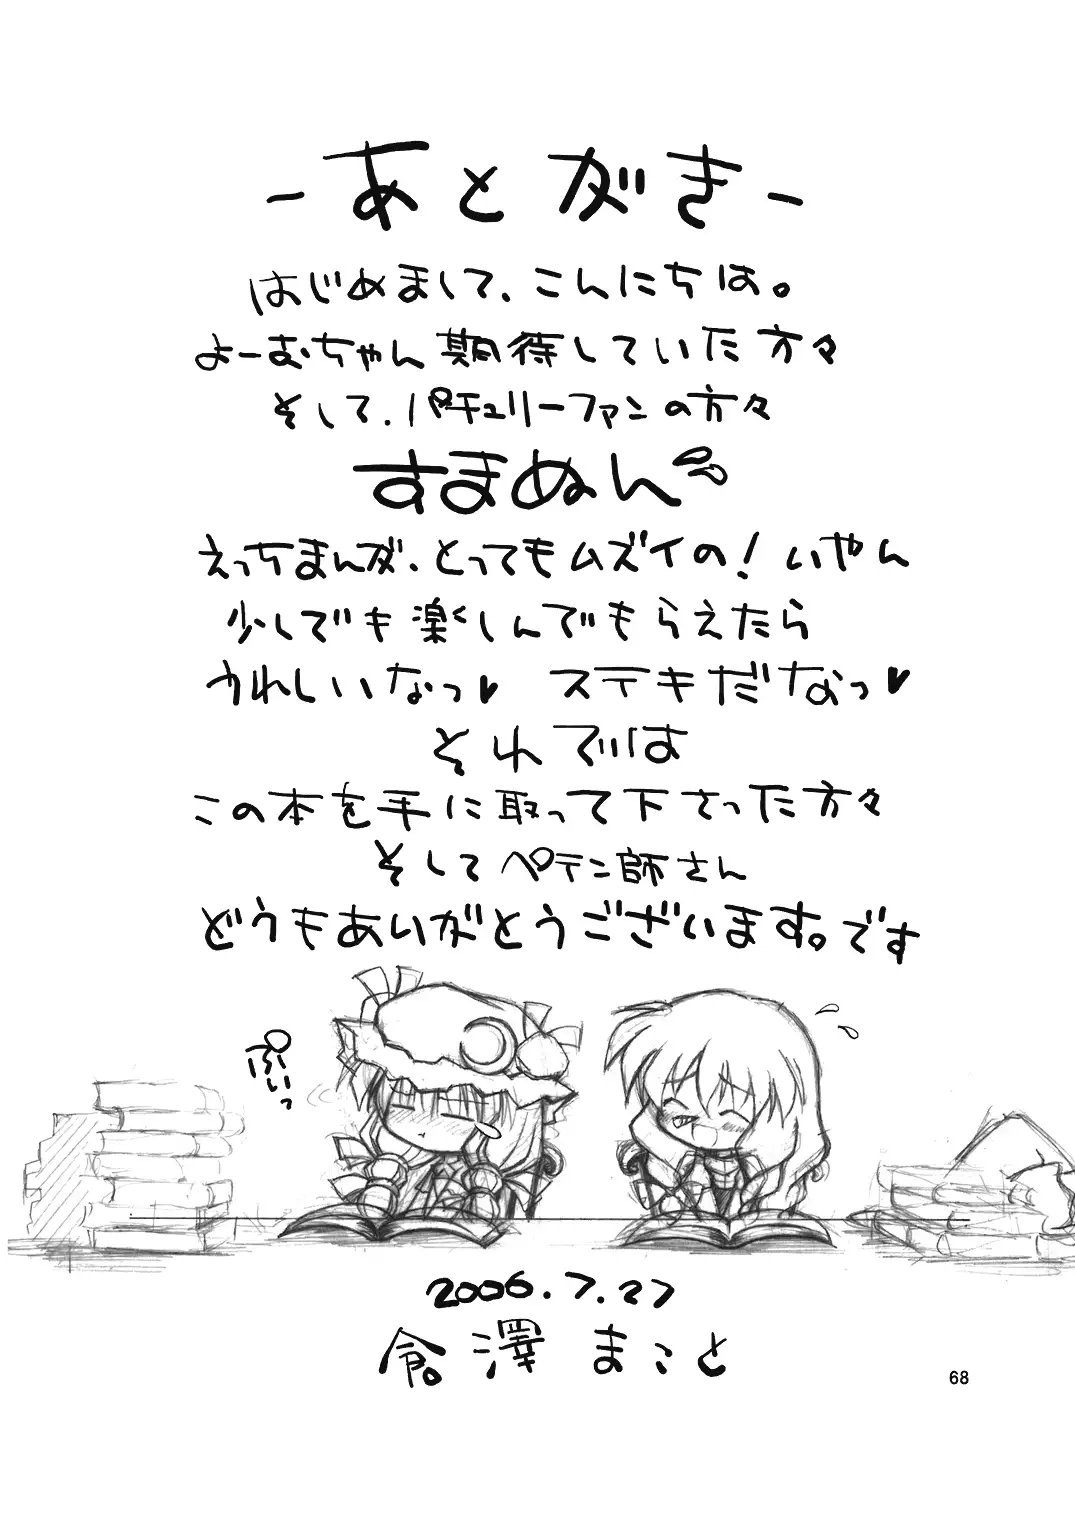 -あとがき-
はじめまして、こんにちは。
よーむちゃん期待していた方々
そして、パチュリーファンの方々
すまぬん
えっちまんが、とってもムズイの!いやん
少しでも楽しんでもらえたら
うれしいなっ♥ ステキだなっ♥
それでは
この本を手に取って下さった方々
そしてペテン師さん
どうもありがとうございます。です
ぷいっ
2006.7.27
倉澤まこと
68